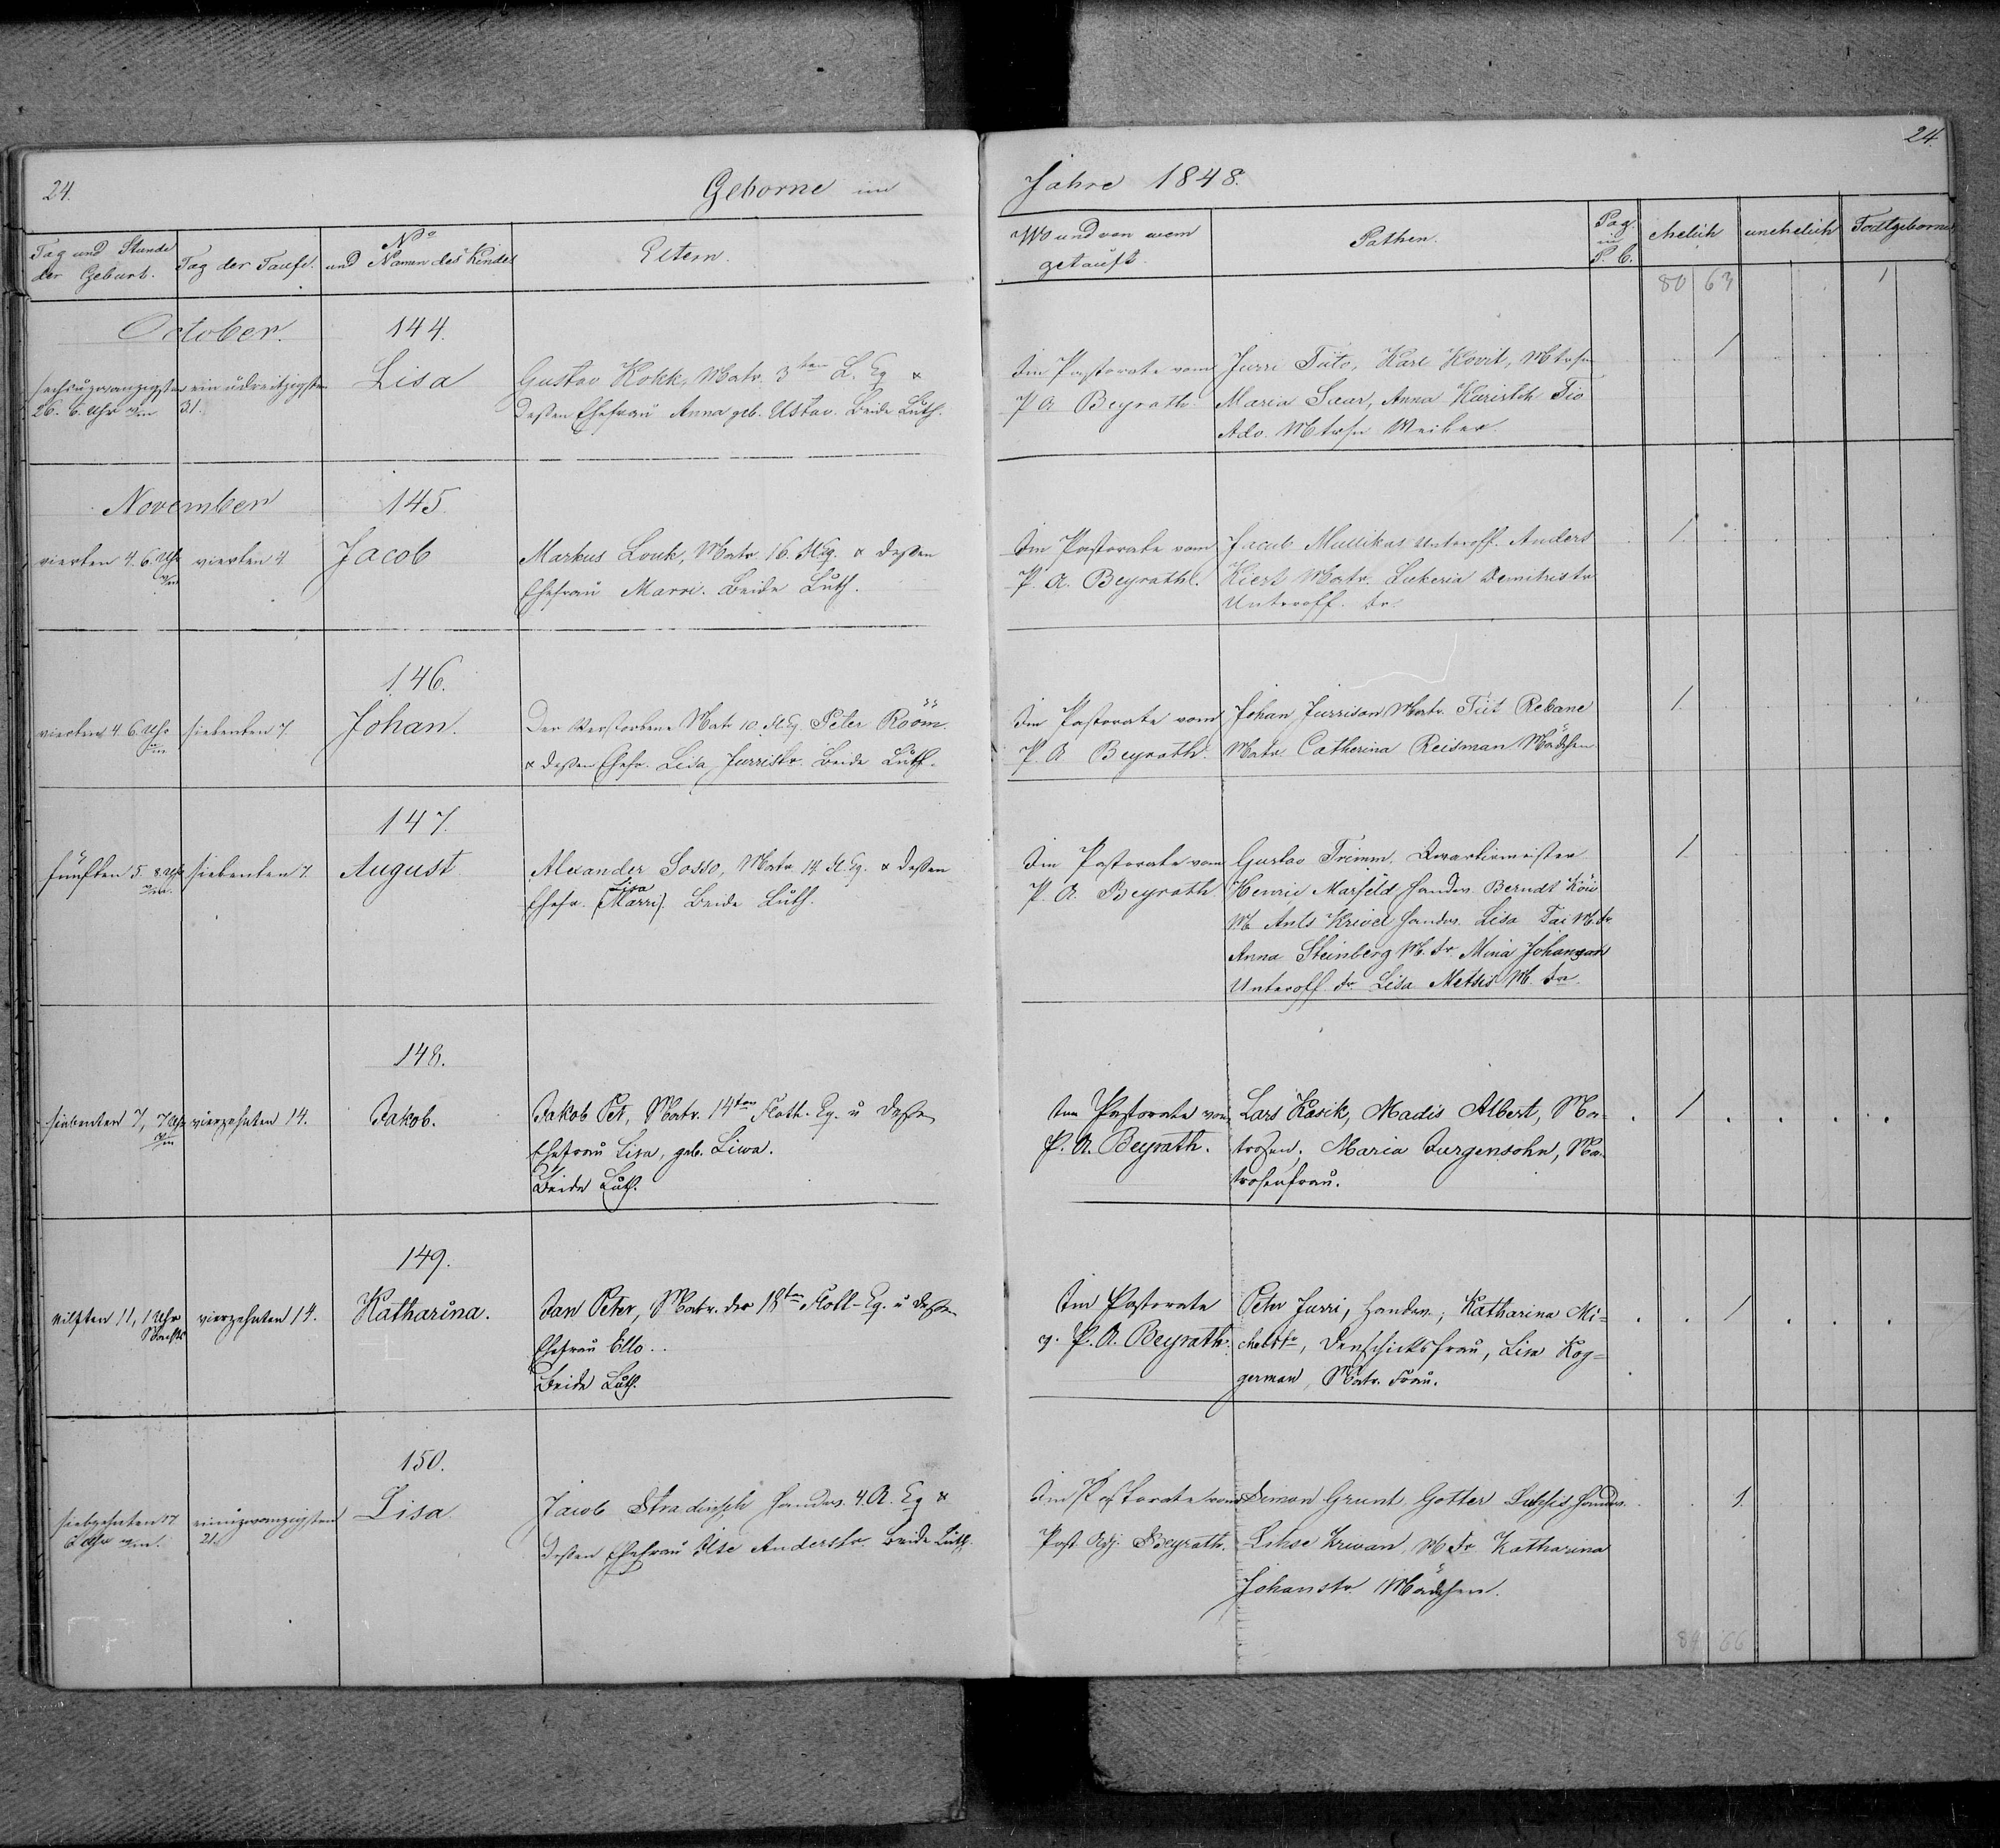 24.
Geborne im
Jahre 1848.
24.
Tag und Stunde der Geburt.
Tag der Taufe.
No und Namen des Kindes
Eltern.
Wo und von wem getauft.
Pathen.
Pag. in P. B.
ehelich
unehelich
Todtgeborne
80 63 1
October.
144.
sechsundzwanzigsten
26. 6. Uhr
ein u dreitzigsten
31.
Lisa
Gustav Kokk, Matr. 3ten L. Eq &
dessen Ehefrau Anna geb. Ustav. Beide Luth.
Im Pastorate vom
P A Beyrath.
Jurri Tuto, Karl Kovit, Mtrsn
Maria Saar, Anna Kuristik Tio
Ado. Mtrsn Weiber.
1
November
145
vierten 4. 6. Uhr
vierten 4
Jacob
Markus Louk, Matr. 16. Fl Eq. & dessen
Ehefrau Marri. Beide Luth.
Im Pastorate vom
P. A. Beyrath.
Jacub Mullikas Unteroff. Anders
Kierl Matr. Lukeria Demitristr
Unteroff. fr.
1
146.
vierten 4. 6. Uhr
siebenten 7
Johan.
Der Verstorbene Matr 10. Fl Eq. Peter Rööm.
& dessen Ehefr. Lisa Jurristr. Beide Luth.
Im Pastorate vom
P. A Beyrath.
Johan Jurrison Matr. Tiit Rebane
Matr. Catherina Reisman Mädchen
1
147.
fünften 5 8 Uhr
siebenten 7.
August
Alexander Sosso, Matr. 14. Fl. Eq. & dessen
Lisa
Ehefr. (Marri). Beide Luth.
Im Pastorate vom
P. A. Beyrath
Gustav Trimm. Quartirmeister
Henric Marfeld Handw. Berndt Köiv
M Ants Krivel Handw. Lisa Tai M. fr
Anna Steinberg M. fr. Mina Johanson
Unteroff fr. Lisa Metsis M. fr.
1
148.
siebenten 7, 7 Uhr
vierzehnten 14.
Jakob.
Jakob Pet, Matr. 14ten Flott. Eq. u dessen
Ehefrau Lisa, geb. Liwa.
Beide Luth.
Im Pastorate von
P. A. Beyrath.
Lars Kasik, Madis Albert, Ma-
trosen; Maria Jurgensohn, Ma-
trosenfrau.
1
149.
eilften 11, 1 Uhr
Nachts
vierzehnten 14.
Katharina.
Jan Peter, Matr. der 18ten Flott-Eq. u dessen
Ehefrau Ello.
Beide Luth.
Im Pastorate
v. P. A. Beyrath.
Peter Jurri, Handw.; Katharina Mi=
chelstr, Denschicksfrau, Lisa Kog=
german, Matr. Frau.
1
150.
siebzehnten 17
6 Uhr
einuzwanzigsten
21.
Lisa
Jacob Handw. 4. A. Eq &
dessen Ehefrau Ilse Anderstr. Beide Luth.
Im Pastorate vom
Past Adj. Beyrath.
Simon Grunt, Gotter Handw.
Lihse Krivan, M. Fr. Katharina
Johanstr. Mädchen.
1
84 66